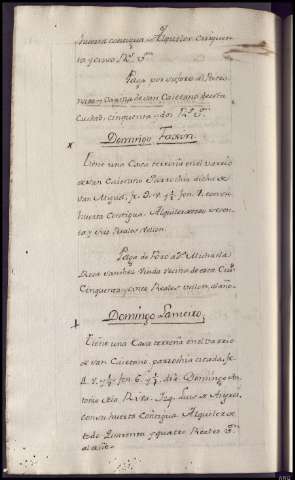 huerta contigua. Alquiler cinquen
ta y cinco Rs. Vn.
Paga por su foro al Patro
nato y Varina de san Caietano de esta
Ciudad, cinquenta y dos Rs. Vn.
x Domingo Faxon.
Tiene una Casa terreña en el varrio
de san Caietano Parrochia dicha de
san Miguel, fr. 9. v. y ½ fon. 7. con su
huerta Contigua. Alquiler
y tres Reales vellon.
Paga de foro a Da. Michaela
Rosa Sanchez Viuda vecina de esta Ciud.
Cinquenta y siete Reales vellon al año.
Domingo Lameiro,
Tiene una Casa terreña en el varrio
de san Caietano, parrochia citada, fr.
8. v. y ½ fon. 6. y ½, dra. Domingo An
tonio izq. Luis de
con su huerta Contigua Alquiler de
todo Quarenta y quatro Reales Vn.
al año.